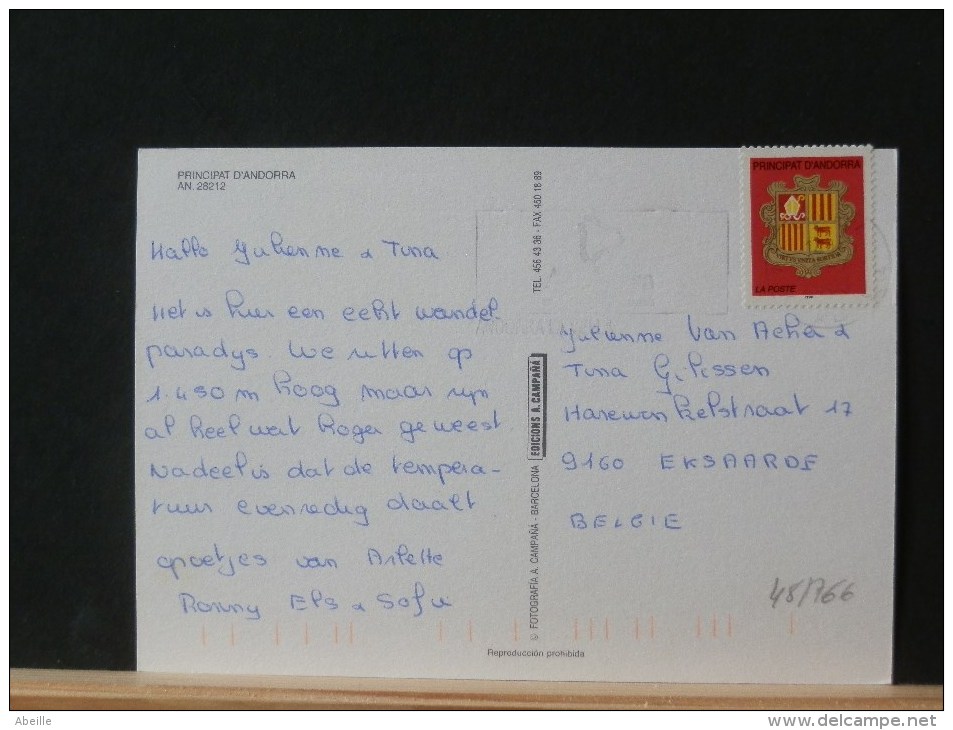 PRINCIPAT D'ANDORRA
AN. 28212
Hallo Julienne & Tina
Het is hier een echt wandel
paradys. We zitten op
1.450 m hoog maar zyn
al heel wat hoger geweest
Nadeel is dat de tempera-
tuur evenredig daalt
groetjes van Arlette
Ronny Els & Sofie
© FOTOGRAFÍA A. CAMPAÑÁ - BARCELONA
EDICIONS A. CAMPAÑÁ
TEL. 456 43 36 - FAX 450 18 89
PRINCIPAT D'ANDORRA
LA POSTE
Julienne Van Acker &
Tina Gilissen
17
9160 EKSAARDE
BELGIE
48/766
Reproducción prohibida
Abeille
www.delcampe.net